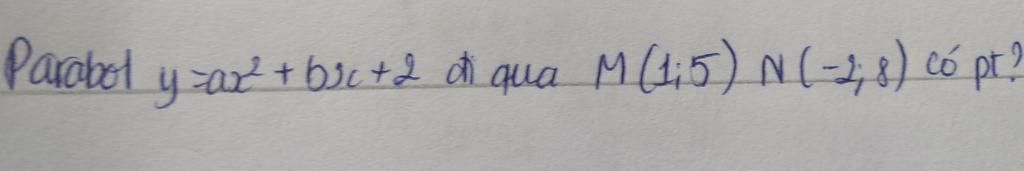 Parabol y=ax²+bx+2 đi qua M(1;5) N(-2;8) có pt?